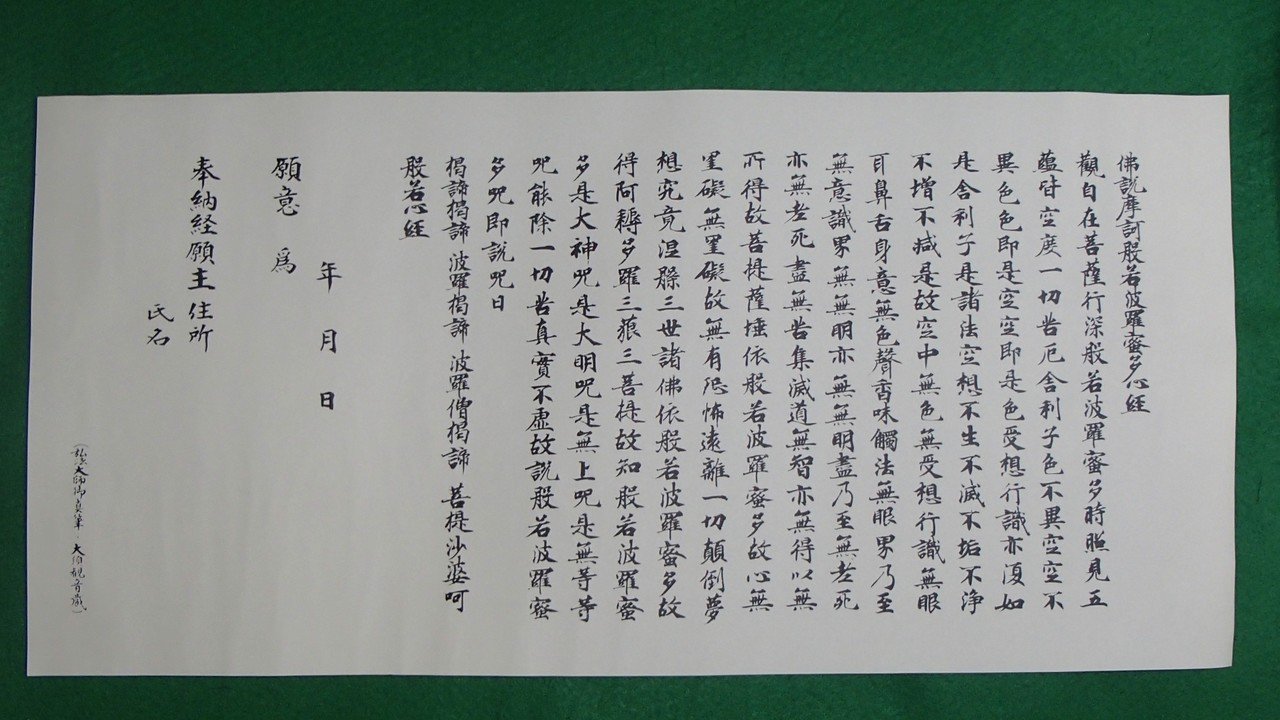 佛説摩訶般若波羅蜜多心経
觀自在菩薩行深般若波羅蜜多時照見五
蘊皆空度一切苦厄舎利子色不異空空不
異色色即是空空即是色受想行識亦復如
是舎利子是諸法空想不生不滅不垢不浄
不增不減是故空中無色無受想行識無眼
耳鼻舌身意無色聲香味觸法無眼界乃至
無意識界無無明亦無無明盡乃至無老死
亦無老死盡無苦集滅道無智亦無得以無
所得故菩提薩埵依般若波羅蜜多故心無
罣礙無罣礙故無有恐怖遠離一切顛倒夢
想究竟涅槃三世諸佛依般若波羅蜜多故
得阿耨多羅三藐三菩提故知般若波羅蜜
多是大神呪是大明呪是無上呪是無等等
呪能除一切苦真實不虚故説般若波羅蜜
多呪即説呪曰
揭諦揭諦 波羅揭諦 波羅僧揭諦 菩提沙婆呵
般若心経
年 月 日
願意 為
奉納経願主 住所
氏名
(弘法大師御真筆・大伯観音蔵)